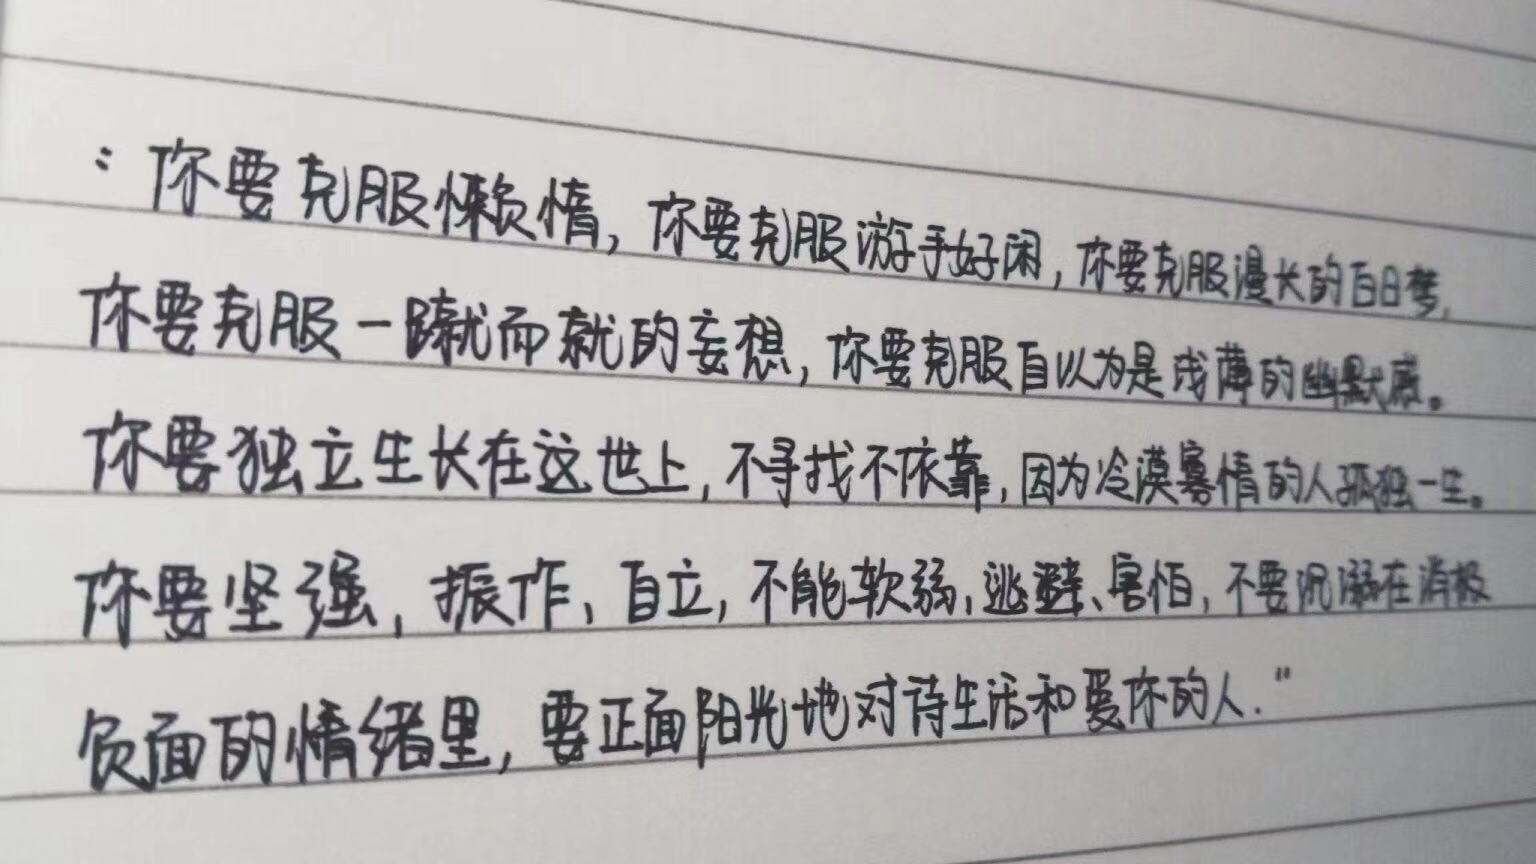 “你要克服懒惰，你要克服游手好闲，你要克服漫长的白日梦，
你要克服一蹴而就的妄想，你要克服自以为是浅薄的幽默感。
你要独立生长在这世上，不寻找不依靠，因为冷漠寡情的人孤独一生。
你要坚强，振作，自立，不能软弱，逃避、害怕，不要沉溺在消极
负面的情绪里，要正面阳光地对待生活和爱你的人.”